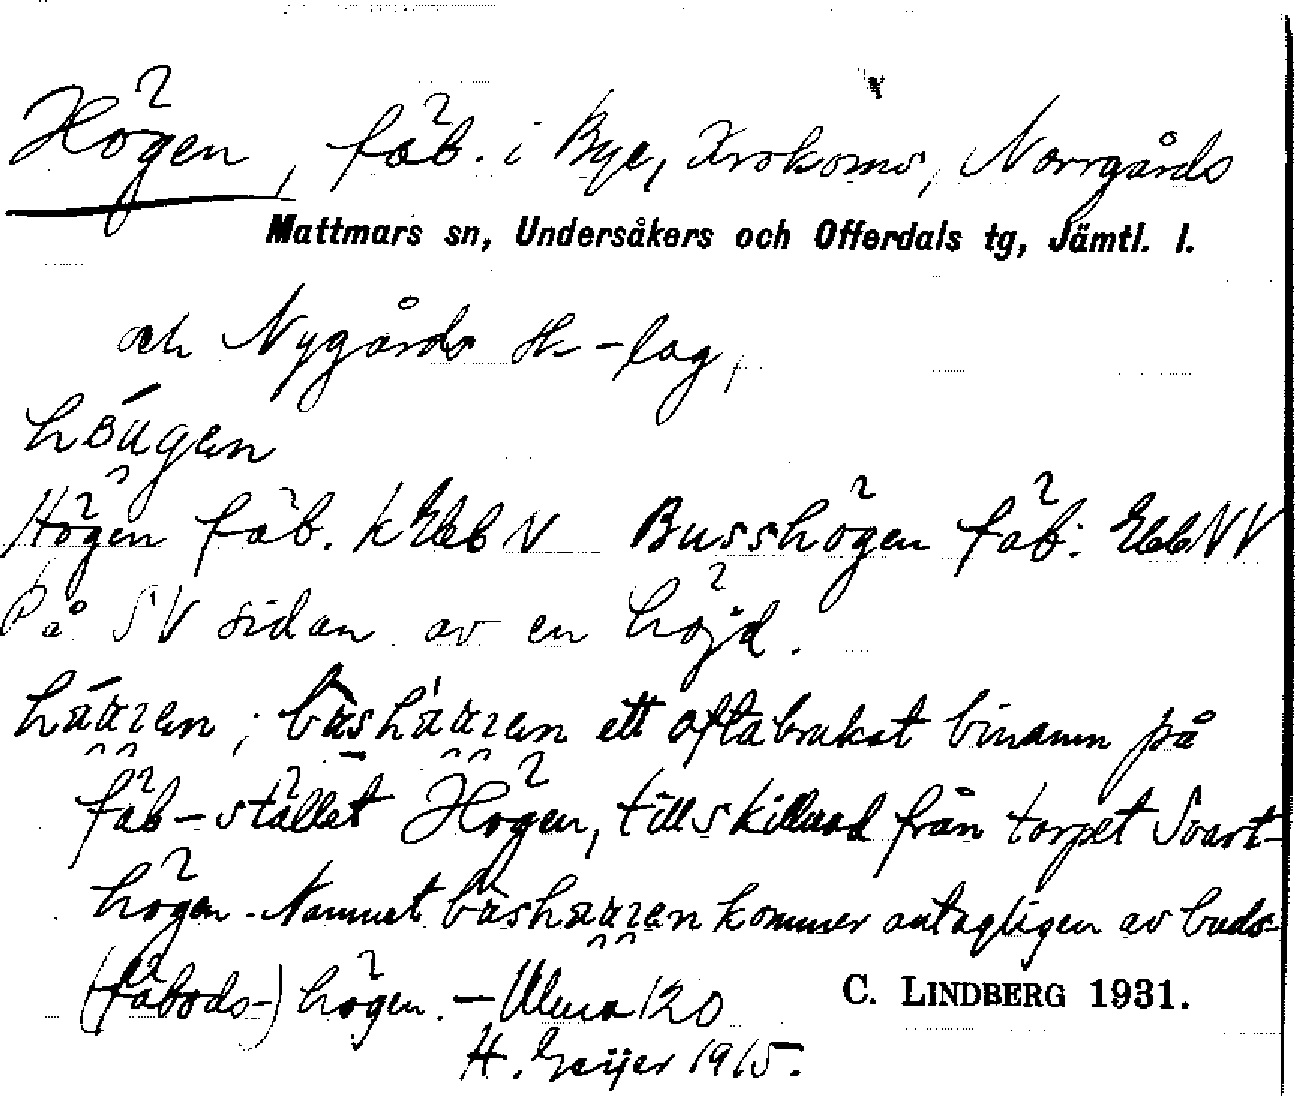 Högen, fäb. i Bye, Krokoms, Norrgårds
Mattmars sn, Undersåkers och Offerdals tg, Jämtl. l.
och Nygårds sk-lag,
Högen fäb. k Ebb V Busshögen fäb. Ebb VV
På SV sidan av en höjd.
ett ofta brukat binamn på
fäb-stället Högen, till skillnad från torpet Svart-
högen. Namnet kommer antagligen av buds-
(fäbods-) högen. – Ulma 120
C. LINDBERG 1931.
H. Geijer 1915.